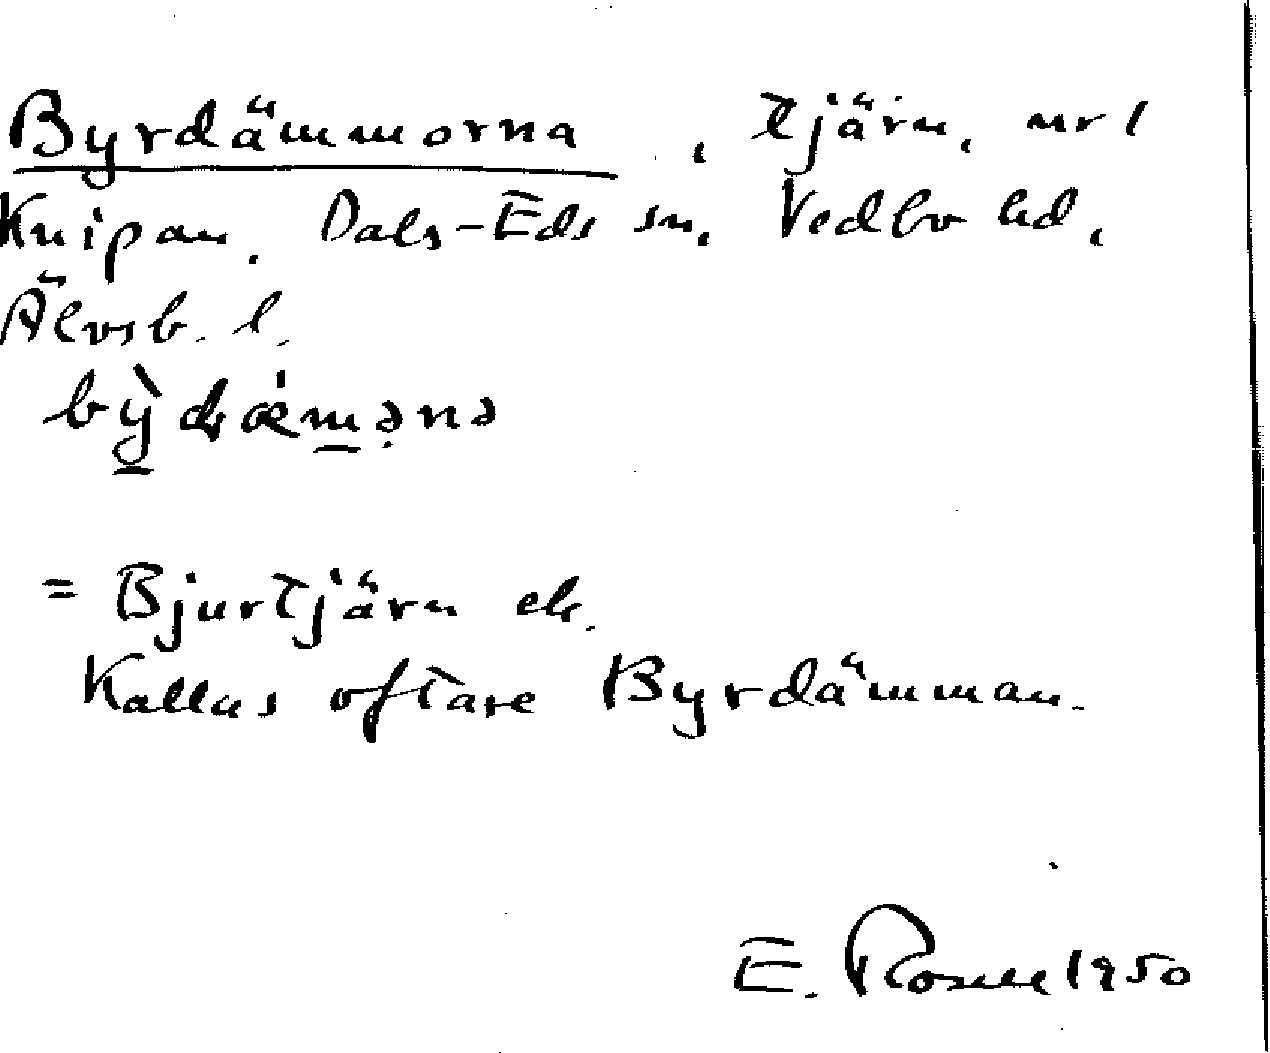 Byrdämmorna, tjärn, nr 1
Knipan. Dals-Eds sn, Vedbo hd,
Älvsb. l.
bỳdæ̇mənə
= Bjurtjärn ek.
Kallas oftare Byrdämman.
E. Rosell 1950